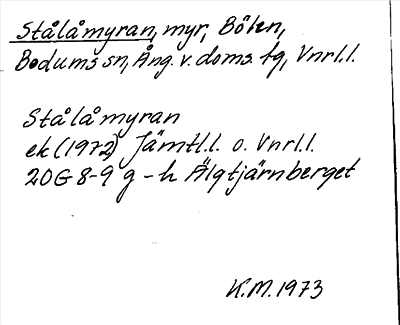 Stålåmyran, myr, Bölen,
Bodums sn, Ång. v. doms. tg, Vnrl.l.
Stålåmyran
ek (1972) Jämtl.l. o. Vnrl.l.
20G 8-9 g-h Älgtjärnberget
K.M. 1973